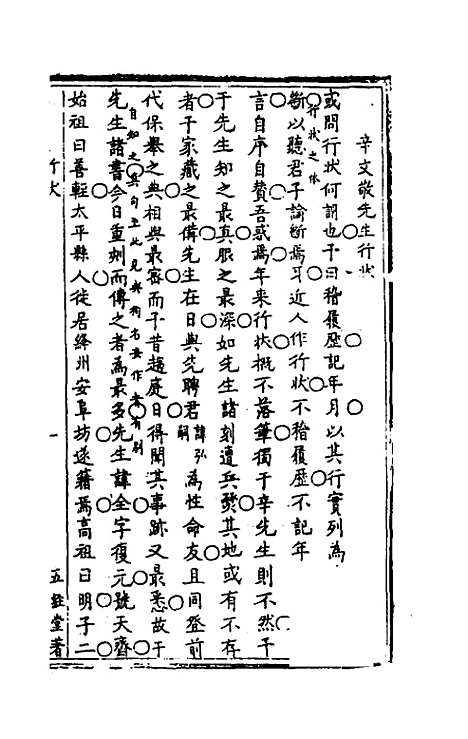 辛文敬先生行狀
或問行狀何謂也予曰稽履歷記年月以其行實列為
斷以聽君子論斷焉耳近人作行狀不稽履歷不記年
行狀之体
言自序自贊吾惑焉年来行狀概不落筆獨于辛先生則不然予
于先生知之最真服之最深如先生諸刻遭兵燹其地或有不存
者予家藏之最備先生在日與先聘君諱弘嗣為性命友且同登前
代保舉之典相與最密而予昔趨庭日得聞其事跡又最悉故于
自知之真句至此見與狗名妄作者有別
先生諸書今日重刻而傳之者為最多先生諱全字復元號天齊
始祖曰善輕太平縣人徙居絳州安阜坊遂籍焉高祖曰明子二
行狀
一
五經堂著